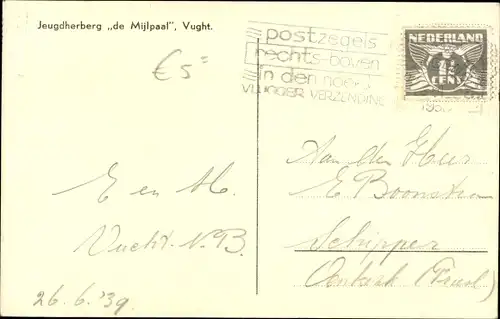 Jeugdherberg „de Mijlpaal”, Vught.
€5=
postzegels
rechts-boven
in den hoek
VLUGGER VERZENDING
NEDERLAND
1½
CENT
E en M.
Vucht. N.B.
26.6.'39
Aan den Heer
E Boonstra
Schipper